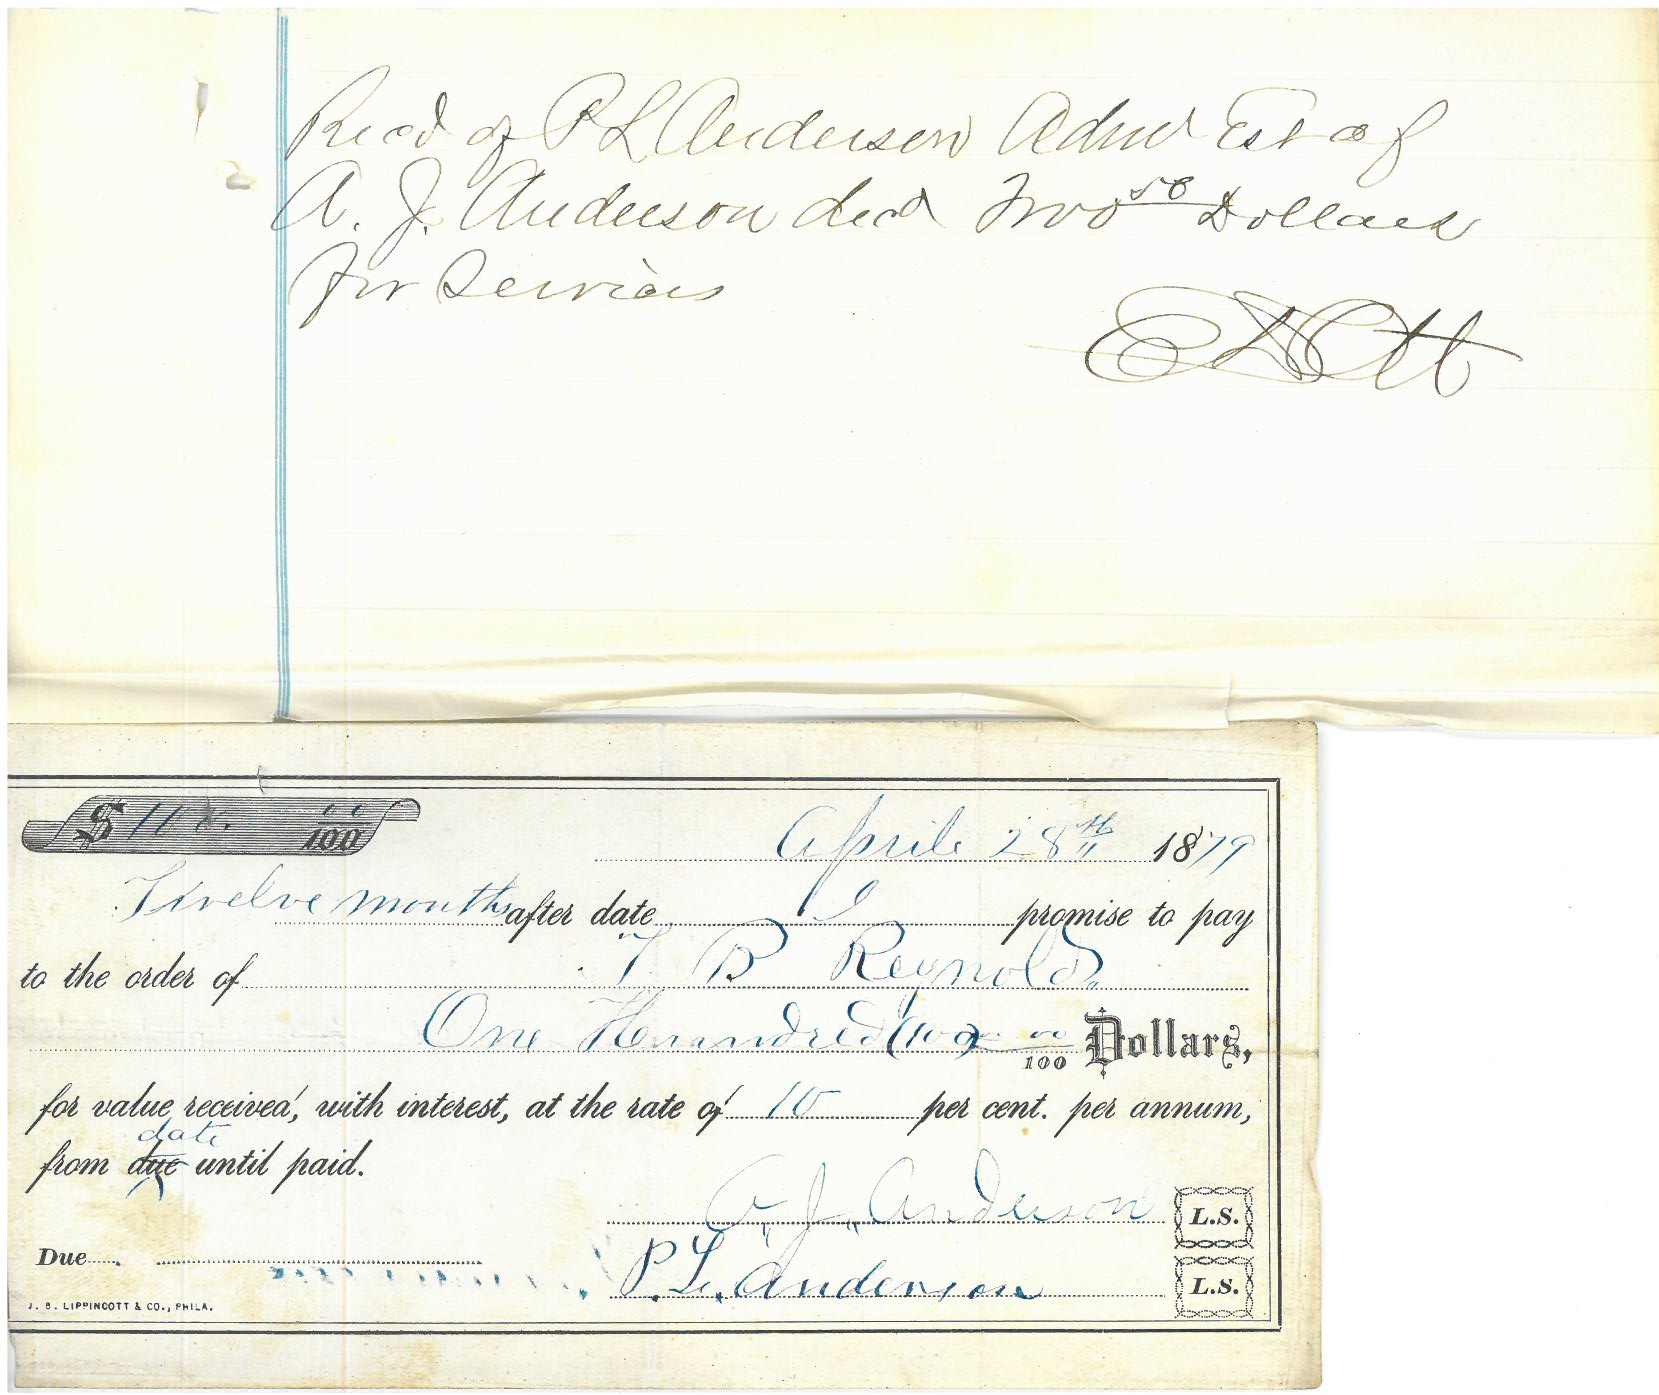 Recd of P L Anderson Admr Est of
A. J. Anderson decd Two 50 Dollars
for Services
$ 100. 00/100
Aprile 28th 1879
Twelve months after date I promise to pay
to the order of T B Reynolds
One Hunndred (100 00/100 Dollars,
for value received, with interest, at the rate of 10 per cent. per annum,
date
from due until paid.
A. J. Anderson L.S.
Due
P. L. Anderson L.S.
J. B. LIPPINCOTT & CO., PHILA.